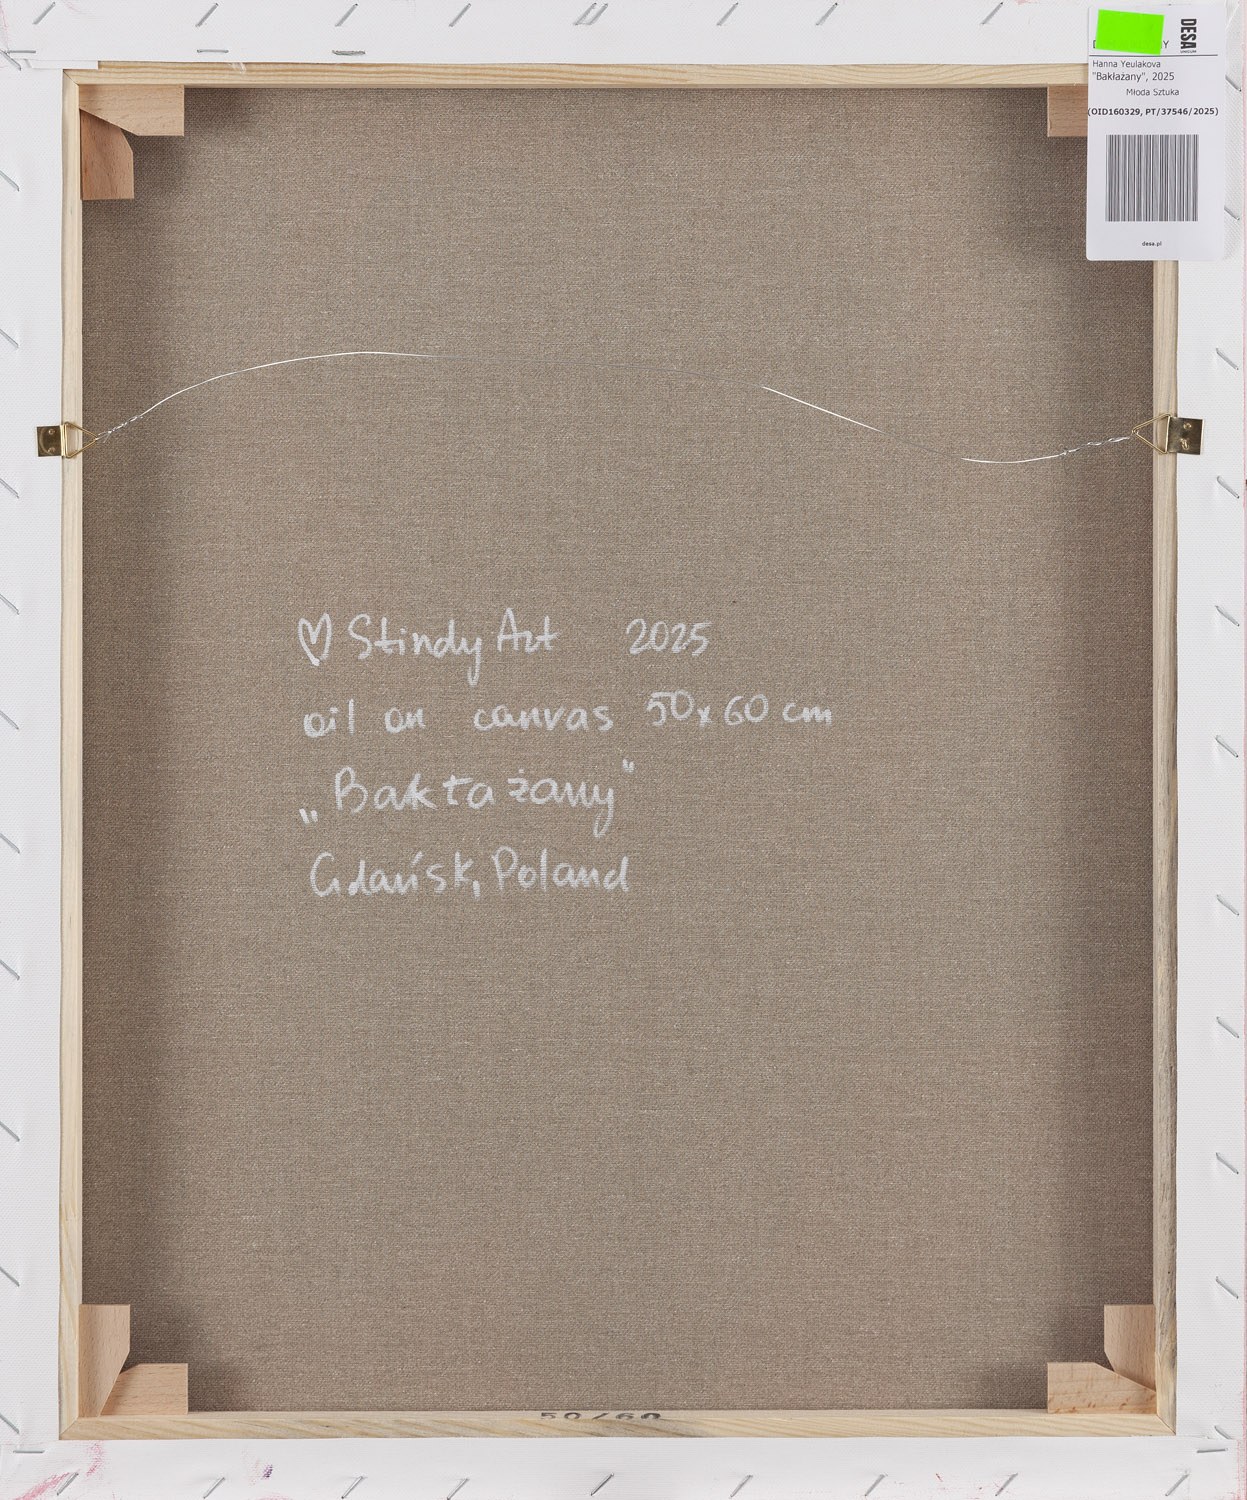 DESA
Hanna Yeulakova
"Bakłażany", 2025
Młoda Sztuka
(OID160329, PT/37546/2025)
desa.pl
♡ Stindy Art 2025
oil on canvas 50x60 cm
„Bakłażany"
Gdańsk, Poland
50/60